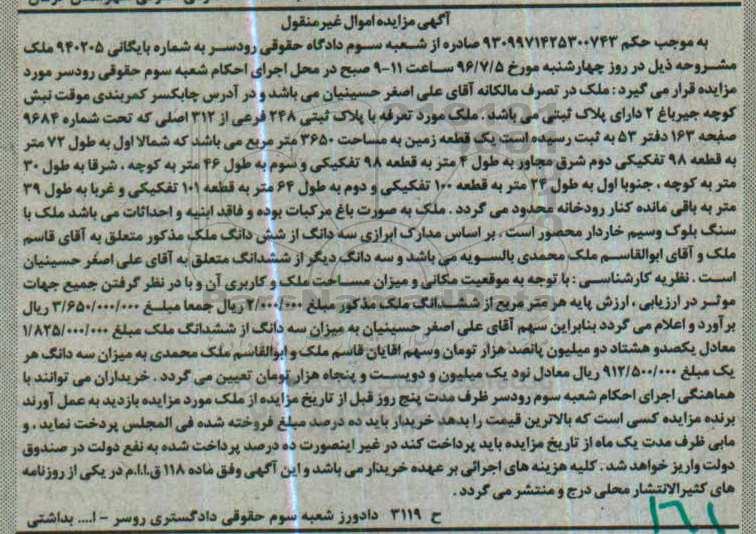 آگهی مزایده اموال غیر منقول
به موجب حکم ۹۳۰۹۹۷۱۴۲۵۳۰۰۷۴۳ صادره از شعبه سوم دادگاه حقوقی رودسر به شماره بایگانی ۹۴۰۲۰۵ ملک
مشروحه ذیل در روز چهارشنبه مورخ ۹۶/۷/۵ ساعت ۱۱-۹ صبح در محل اجرای احکام شعبه سوم حقوقی رودسر مورد
مزایده قرار می گیرد : ملک در تصرف مالکانه آقای علی اصغر حسینیان می باشد و در آدرس چابکسر کمربندی موقت نبش
کوچه جیرباغ ۲ دارای پلاک ثبتی می باشد . ملک مورد تعرفه با پلاک ثبتی ۲۴۸ فرعی از ۳۱۲ اصلی که تحت شماره ۹۶۸۴
صفحه ۱۶۳ دفتر ۵۳ به ثبت رسیده است یک قطعه زمین به مساحت ۳۶۵۰ متر مربع می باشد که شمالا اول به طول ۷۲ متر
به قطعه ۹۸ تفکیکی دوم شرق مجاور به طول ۴ متر به قطعه ۹۸ تفکیکی و سوم به طول ۴۶ متر به کوچه ، شرقا به طول ۳۰
متر به کوچه ، جنوبا اول به طول ۲۴ متر به قطعه ۱۰۰ تفکیکی و دوم به طول ۶۴ متر به قطعه ۱۰۱ تفکیکی و غربا به طول ۳۹
متر به باقی مانده کنار رودخانه محدود می گردد . ملک به صورت باغ مرکبات بوده و فاقد ابنیه و احداثات می باشد ملک با
سنگ بلوک وسیم خاردار محصور است . بر اساس مدارک ابرازی سه دانگ از شش دانگ ملک مذکور متعلق به آقای قاسم
ملک و آقای ابوالقاسم ملک محمدی بالسویه می باشد و سه دانگ دیگر از ششدانگ متعلق به آقای علی اصغر حسینیان
است . نظریه کارشناسی : با توجه به موقعیت مکانی و میزان مساحت ملک و کاربری آن و با در نظر گرفتن جمیع جهات
موثر در ارزیابی ، ارزش پایه هر متر مربع از ششدانگ ملک مذکور مبلغ ۲/۰۰۰/۰۰۰ ریال جمعا مبلغ ۳/۶۵۰/۰۰۰/۰۰۰ ریال
برآورد و اعلام می گردد بنابراین سهم آقای علی اصغر حسینیان به میزان سه دانگ از ششدانگ ملک مبلغ ۱/۸۲۵/۰۰۰/۰۰۰
معادل یکصدو هشتاد دو میلیون پانصد هزار تومان وسهم اقایان قاسم ملک و ابوالقاسم ملک محمدی به میزان سه دانگ هر
یک مبلغ ۹۱۲/۵۰۰/۰۰۰ ریال معادل نود یک میلیون و دویست و پنجاه هزار تومان تعیین می گردد . خریداران می توانند با
هماهنگی اجرای احکام شعبه سوم رودسر ظرف مدت پنج روز قبل از تاریخ مزایده از ملک مورد مزایده بازدید به عمل آورند
برنده مزایده کسی است که بالاترین قیمت را بدهد خریدار باید ده درصد مبلغ فروخته شده فی المجلس پرداخت نماید ، و
مابی ظرف مدت یک ماه از تاریخ مزایده باید پرداخت کند در غیر اینصورت ده درصد پرداخت شده به نفع دولت در صندوق
دولت واریز خواهد شد . کلیه هزینه های اجرائی بر عهده خریدار می باشد و این آگهی وفق ماده ۱۱۸ ق.ا.ا.م در یکی از روزنامه
های کثیرالانتشار محلی درج و منتشر می گردد .
ح ۳۱۱۹ دادورز شعبه سوم حقوقی دادگستری روسر - ا.... بداشتی